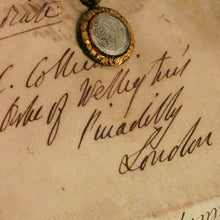 C. Collin
Duke of Wellington's
Piccadilly
London